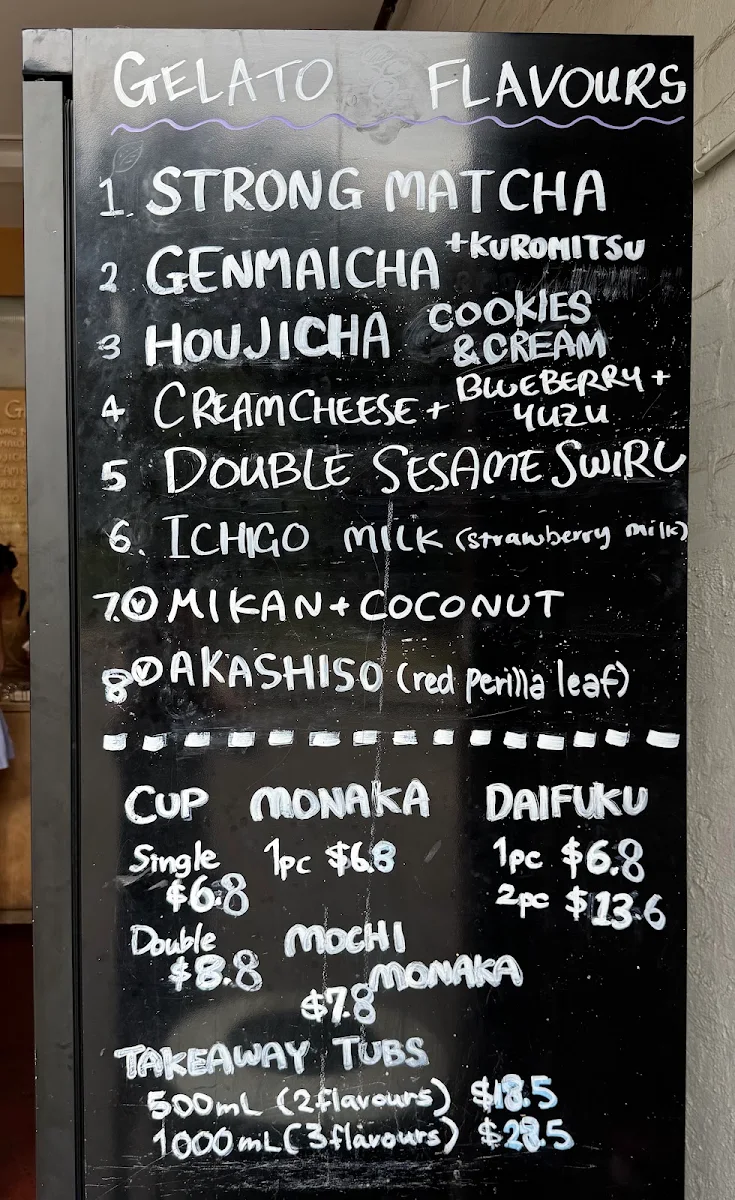 GELATO FLAVOURS
1. STRONG MATCHA
2 GENMAICHA +KUROMITSU
3 HOUJICHA COOKIES & CREAM
4 CREAMCHEESE + BLUEBERRY + YUZU
5 DOUBLE SESAME SWIRL
6. ICHIGO MILK (strawberry milk)
7. V MIKAN + COCONUT
8 V AKASHISO (red perilla leaf)
CUP
Single
$6.8
Double
$8.8
MONAKA
1pc $6.8
MOCHI
MONAKA
$7.8
DAIFUKU
1pc $6.8
2pc $13.6
TAKEAWAY TUBS
500mL (2flavours) $18.5
1000mL (3flavours) $28.5